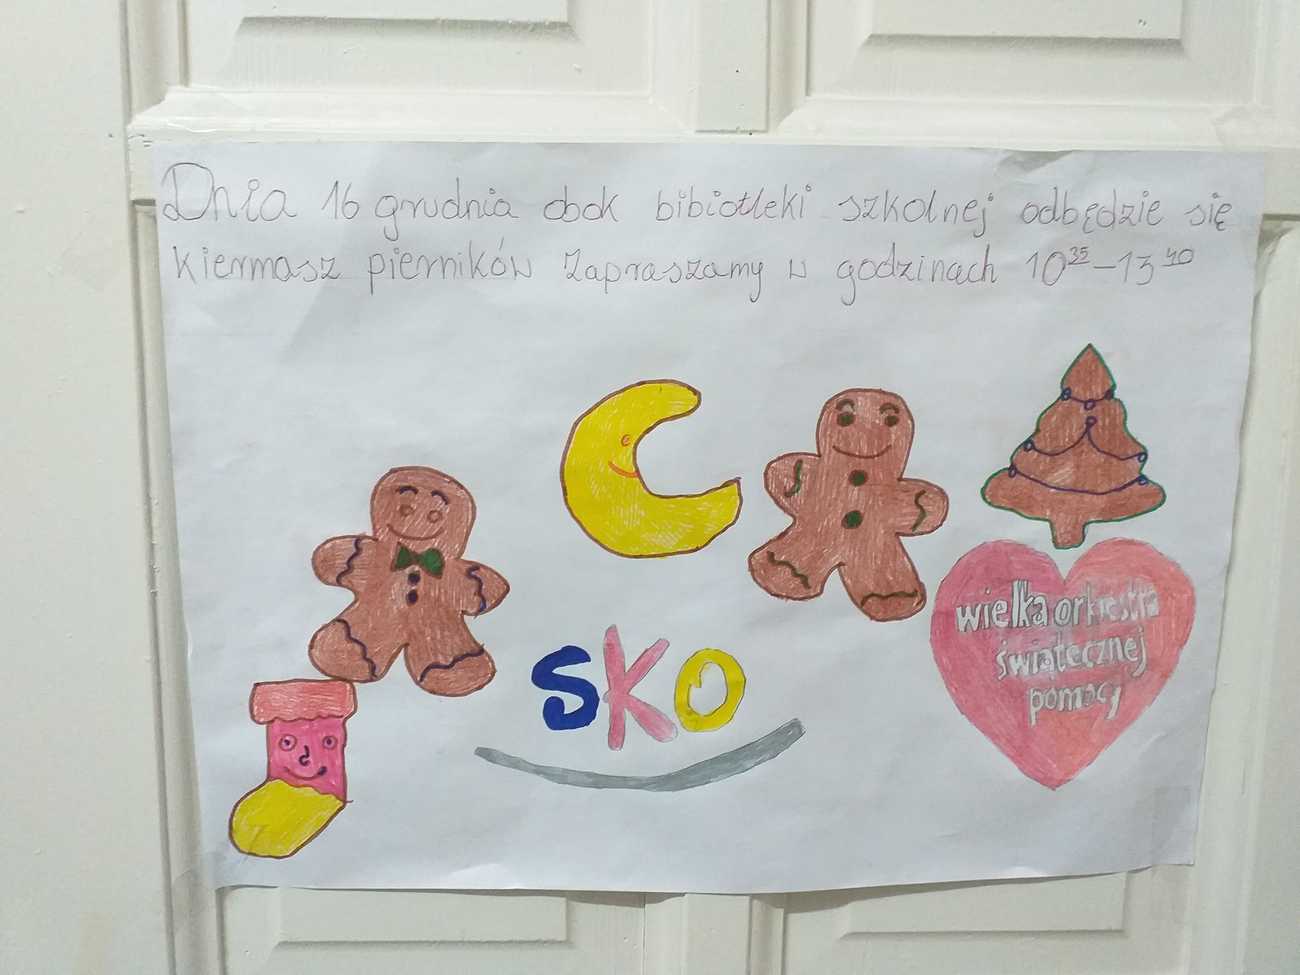 Dnia 16 grudnia obok bibiotleki szkolnej odbędzie się
kiermasz pierników Zapraszamy w godzinach 10³⁵–13⁴⁰
SKO
wielka orkiestra
świątecznej
pomocy